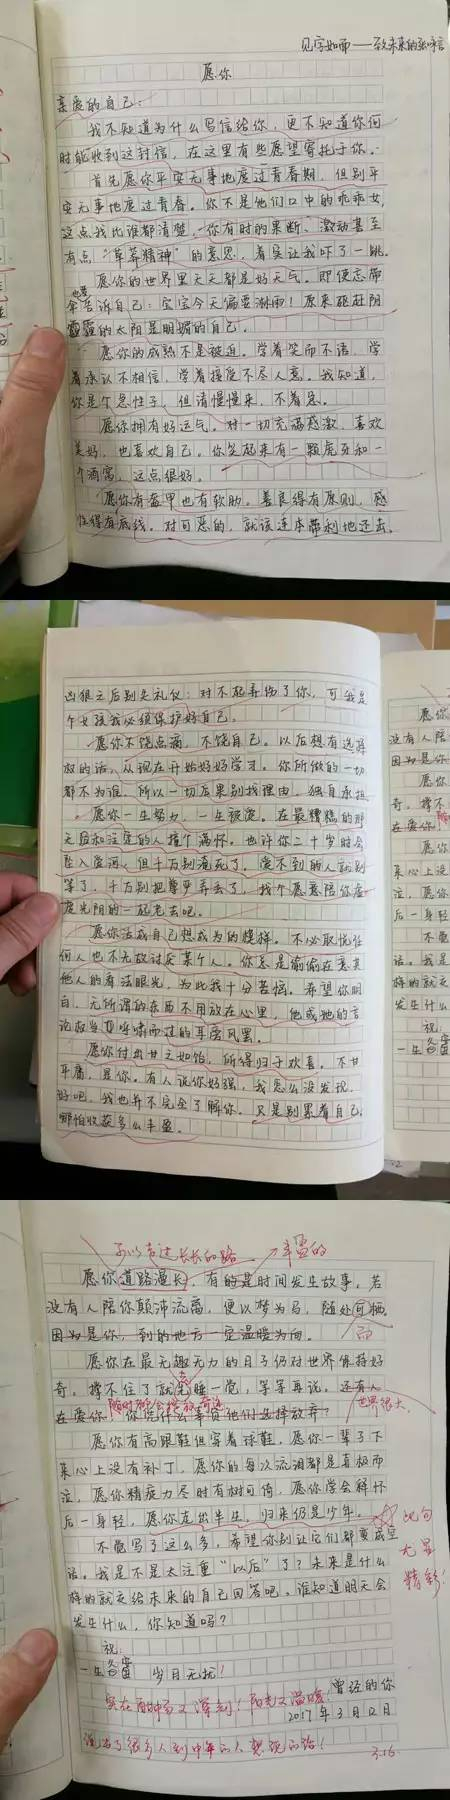 见字如面——致未来的
愿你
亲爱的自己：
我不知道为什么写信给你，更不知道你何
时能收到这封信，在这里有些愿望寄托于你。
首先愿你平安无事地度过青春期，但别平
安无事地度过青春。你不是他们口中的乖乖女，
这点我比谁都清楚，你有时的果断、激动甚至
有点“草莽精神”的意思，着实让我吓了一跳。
愿你的世界里天天都是好天气。即使忘带
伞也要告诉自己：宝宝今天偏要淋雨！原来砸赶阴
霾的太阳是明媚的自己。
愿你的成熟不是被迫。学着笑而不语，学
着承认不相信，学着接受不尽人意。我知道，
你是个急性子，但请慢慢来，不着急。
愿你拥有好运气。对一切充满感激，喜欢
美好，也喜欢自己。你笑起来有一颗虎牙和一
个酒窝，这点很好。
愿你有盔甲也有软肋。善良得有原则，感
性得有底线。对可恶的，就该连本带利地还击，
凶狠之后别失礼仪：对不起弄伤了你，可我是
个女孩我必须保护好自己。
愿你不饶点滴，不饶自己。以后想有选择
权的话，从现在开始好好学习。你所做的一切
都不为谁，所以一切后果别找理由，独自承担
愿你一生努力，一生被爱。在最糟糕的那
天后和注定的人撞个满怀。也许你二十岁时会
坠入爱河，但千万别淹死了，爱不到的人就别
等了，千万别把尊严弄丢了，找个愿意陪你虚
度光阴的一起老去吧。
愿你活成自己想成为的模样。不必取悦任
何人也不无故讨厌某个人。你总是偷偷在意其
他人的看法眼光，为此我十分苦恼。希望你明
白，无所谓的东西不用放在心里，他或她的言
论应当是呼啸而过的耳旁风罢。
愿你付出甘之如饴，所得归于欢喜。不甘
平庸，是你。有人说你好强，我怎么没发现，
好吧，我也并不完全了解你。只是别累着自己，
哪怕收获多么丰盈。
可以有过长长的路
丰盈的
愿你道路漫长，有的是时间发生故事，若
没有人陪你颠沛流离，便以梦为马，随处可栖。
因为是你，到的地方一定温暖为向。
愿你在最无趣无力的日子仍对世界保持好
奇，撑不住了就去睡一觉，等等再说。还有人
在爱你，你凭什么辜负他们选择放弃？
随时都会撞放奇迹
世界很大
愿你有高跟鞋但穿着球鞋，愿你一辈子下
来心上没有补丁，愿你的每次流泪都是喜极而
泣，愿你精疲力尽时有树可倚，愿你学会释怀
后一身轻，愿你走你半生，归来仍是少年。
此句
尤显
精彩！
不觉写了这么多，希望你别让它们都变成空
话。我是不是太注重“以后”了？未来是什么
样的就交给未来的自己回答吧。谁知道明天会
发生什么，你知道吗？
祝：
一生 岁月无扰！
曾经的你
2017年3月12日
实在而又深刻！阳光又温暖！
说出了很多人到中年的人想说的话！
3.16